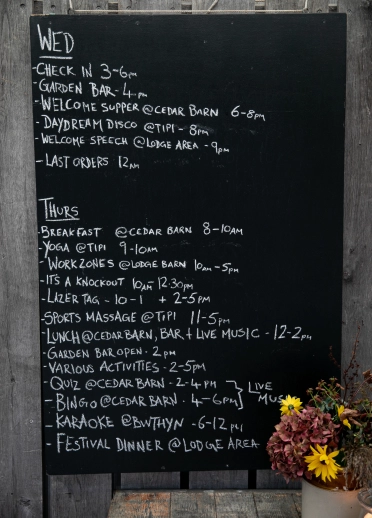 WED
-CHECK IN 3-6PM
-GARDEN BAR-4.PM
-WELCOME SUPPER @CEDAR BARN 6-8PM
-DAYDREAM DISCO @TIPI - 8PM
-WELCOME SPEECH @LODGE AREA - 9PM
-LAST ORDERS 12AM
THURS
-BREAKFAST @CEDAR BARN 8-10AM
-YOGA @TIPI 9-10AM
-WORKZONES @LODGE BARN 10AM-5PM
-ITS A KNOCKOUT 10AM 12:30PM
-LAZER TAG - 10-1 + 2-5PM
-SPORTS MASSAGE @TIPI 11-5PM
-LUNCH @CEDAR BARN, BAR + LIVE MUSIC - 12-2PM
-GARDEN BAR OPEN - 2PM
-VARIOUS ACTIVITIES - 2-5PM
-QUIZ @CEDAR BARN - 2-4PM } LIVE
-BINGO @CEDAR BARN. 4-6PM } MUSIC
-KARAOKE @BWTHYN - 6-12PM
-FESTIVAL DINNER @LODGE AREA